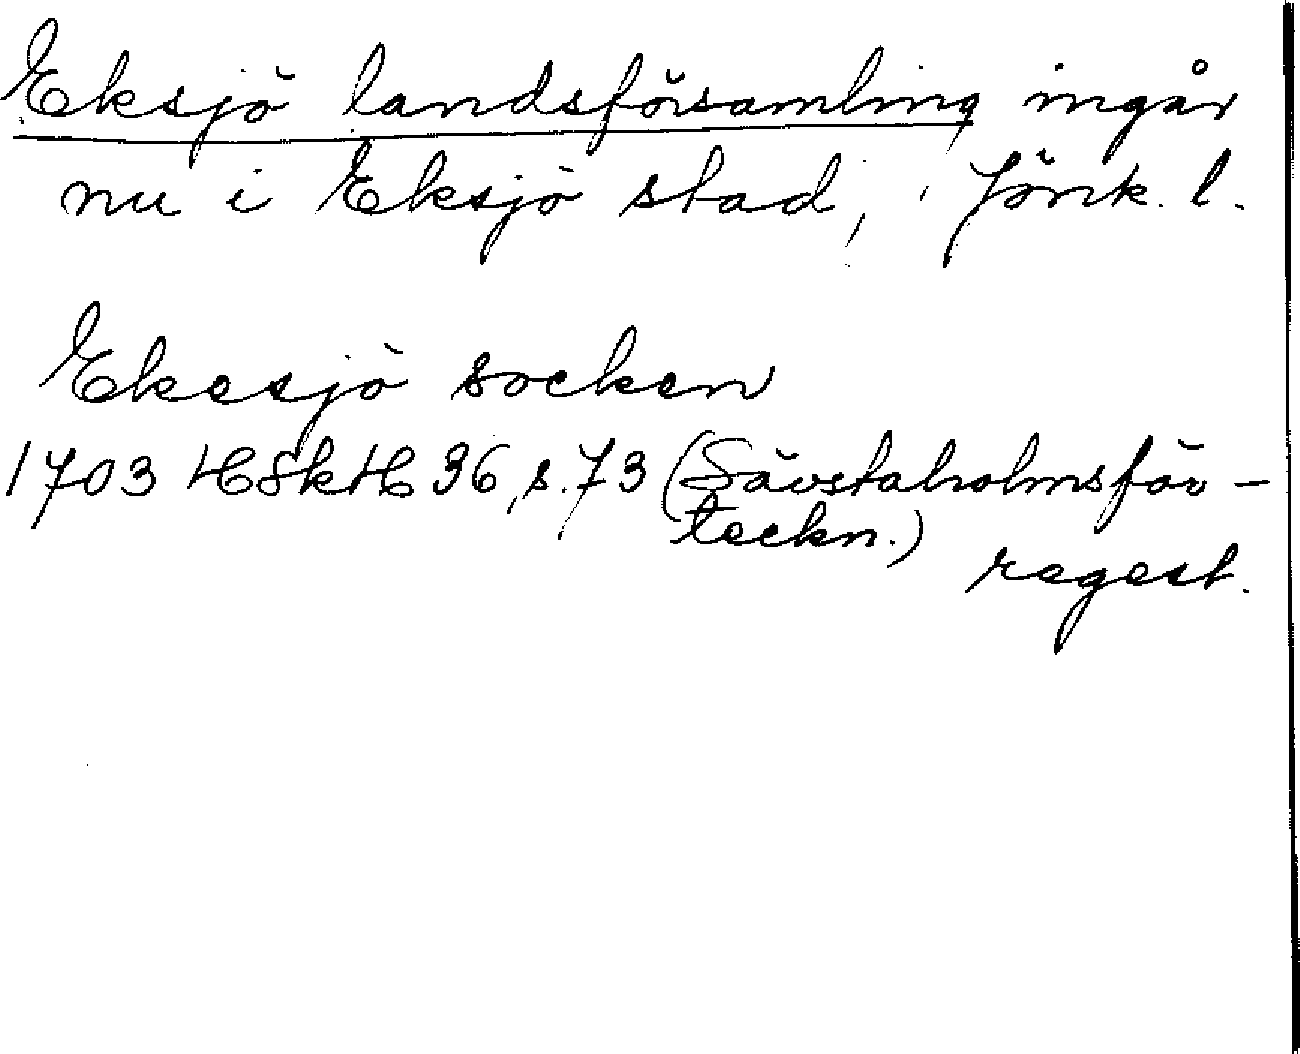 Eksjö landsförsamling ingår
nu i Eksjö stad, Jönk. l.
Ekesjö socken
1703 HSkH 36, s. 73 (Sävstaholmsför-
teckn.)
regest.